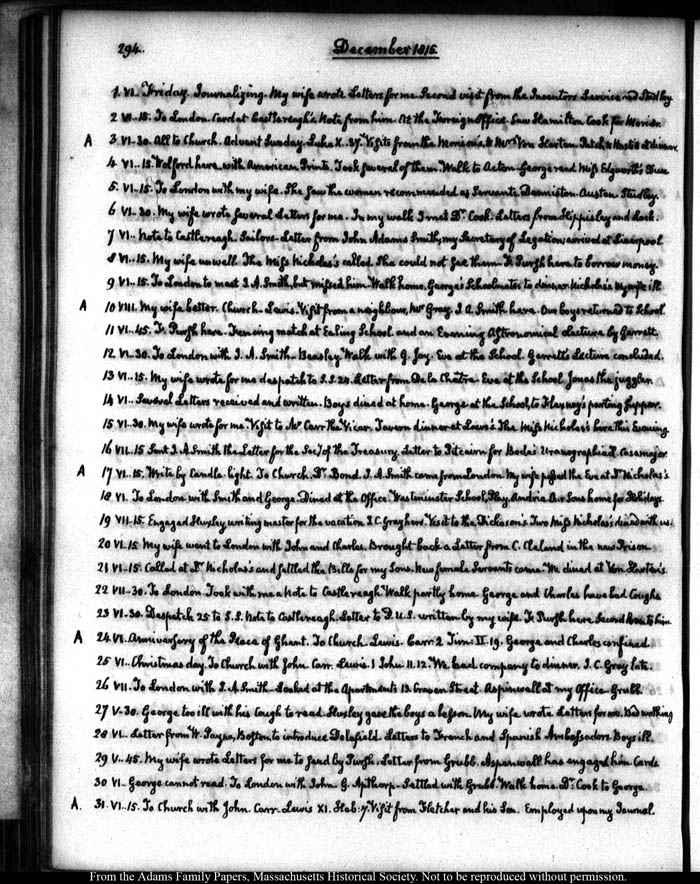 294.
December 1816.
1. VI. Friday. Journalizing. My wife wrote Letters for me. Second visit from the Inventors Service and Studley
2 VI.15. To London. Card at Castlereagh's. Note from him. At the Foreign Office. Saw Hamilton Cook for
A 3 VI.30. All to Church. Advent Sunday. Luke X. 37. Visits from the & Mrs Von Harten. Patch & at dinner.
4 VI..15. Wolford here with American Prints. Took several of them. Walk to Acton. George read Miss Edgworth's
5. VI..15. To London with my wife. She saw the woman recommended as Servants. Danniston. Austen. Studley.
6 VI..30. My wife wrote several Letters for me. In my walk I met Dr. Cook. Letters from Slippisley and
7 VI.. Note to Castlereagh. Sailors. Letter from John Adams Smith, my Secretary of Legation arrived at Liverpool
8 VI..15. My wife unwell. The Miss Nicholas's called. She could not see them. F. Pursh here to borrow money.
9 VI..15. To London to meet J. A. Smith, but missed him. Walk home. George's Schoolmates to dinner. Nicholas's My wife ill.
A 10 VIII. My wife better. Church. Lewis. Visit from a neighbour, Mr Gray. J. A. Smith here. Our boys returned to School
11 VI..45. F. Pursh here. Fencing match at Ealing School and an Evening Astronomical Lecture by Garrett.
12 VI..30. To London with J. A. Smith. Beasley. Walk with G. Joy. Eve at the School. Garrett's Lecture concluded.
13 VI..15. My wife wrote for me despatch to S.S. 24. Letter from De la Chatre. Eve at the School. Jonas the juggler.
14 VI.. Several Letters received and written. Boys dined at home. George at the School, to Flaxney's parting supper.
15 VI..30. My wife wrote for me. Visit to Mr Carr the Vicar. Tavern dinner at Lewis's. The Miss Nicholas's here this Evening.
16 VII..15 Sent J. A. Smith the Letter for the Secy of the Treasury. Letter to Pitcairn for Bode's Uranographia. Casamajor.
A 17 VI..15. Write by Candle light. To Church. Dr. Bond. J. A. Smith came from London. My wife passed the Eve at Dr Nicholas's.
18 VI. To London with Smith and George. Dined at the Office. Westminster School, Play. Andria. Our Sons home for Holidays
19 VII.15. Engaged Huxley writing master for the vacation. J. C. Gray here. Visit to the Dickason's. Two Miss Nicholas's dined with us.
20 VI..15 My wife went to London with John and Charles. Brought back a Letter from C. Cleland in the new Prison
21 VI..15. Called at Dr Nicholas's and settled the Bills for my Sons. New female Servants came. We dined at Von Harten's.
22 VII..30. To London. Took with me a Note to Castlereagh. Walk partly home. George and Charles have bad Coughs
23 VI..30. Despatch 25 to S.S. Note to Castlereagh. Letter to written by my wife. F. Pursh here. Second loan to him
A 24 VI. Anniversary of the Peace of Ghent. To Church. Lewis. Carr. 2 Tim: II. 19. George and Charles confined
25 VI.. Christmas day. To Church with John. Carr. Lewis. 1 John II. 12. We had company to dinner. J. C. Gray late.
26 VII. To London with J. A. Smith. Looked at the Apartments 13. Craven Street. Aspinwall at my Office. Grubb
27 V.30. George too ill with his Cough to read. Huxley gave the boys a lesson. My wife wrote Letters for me. Bad walking
28 VI.. Letter from W. Payne, Boston, to introduce Delafield. Letters to French and Spanish Ambassadors. Boys ill.
29 V..45. My wife wrote Letters for me to send by Pursh. Letter from Grubb. Aspinwall has engaged him. Cards
30 VI. George cannot read. To London with John. G. Apthorp. Settled with Grubb. Walk home. Dr. Cook to George.
A. 31. VI..15. To Church with John. Carr. Lewis XI. Heb: 7. Visit from Fletcher and his Son. Employed upon my Journal.
From the Adams Family Papers, Massachusetts Historical Society. Not to be reproduced without permission.